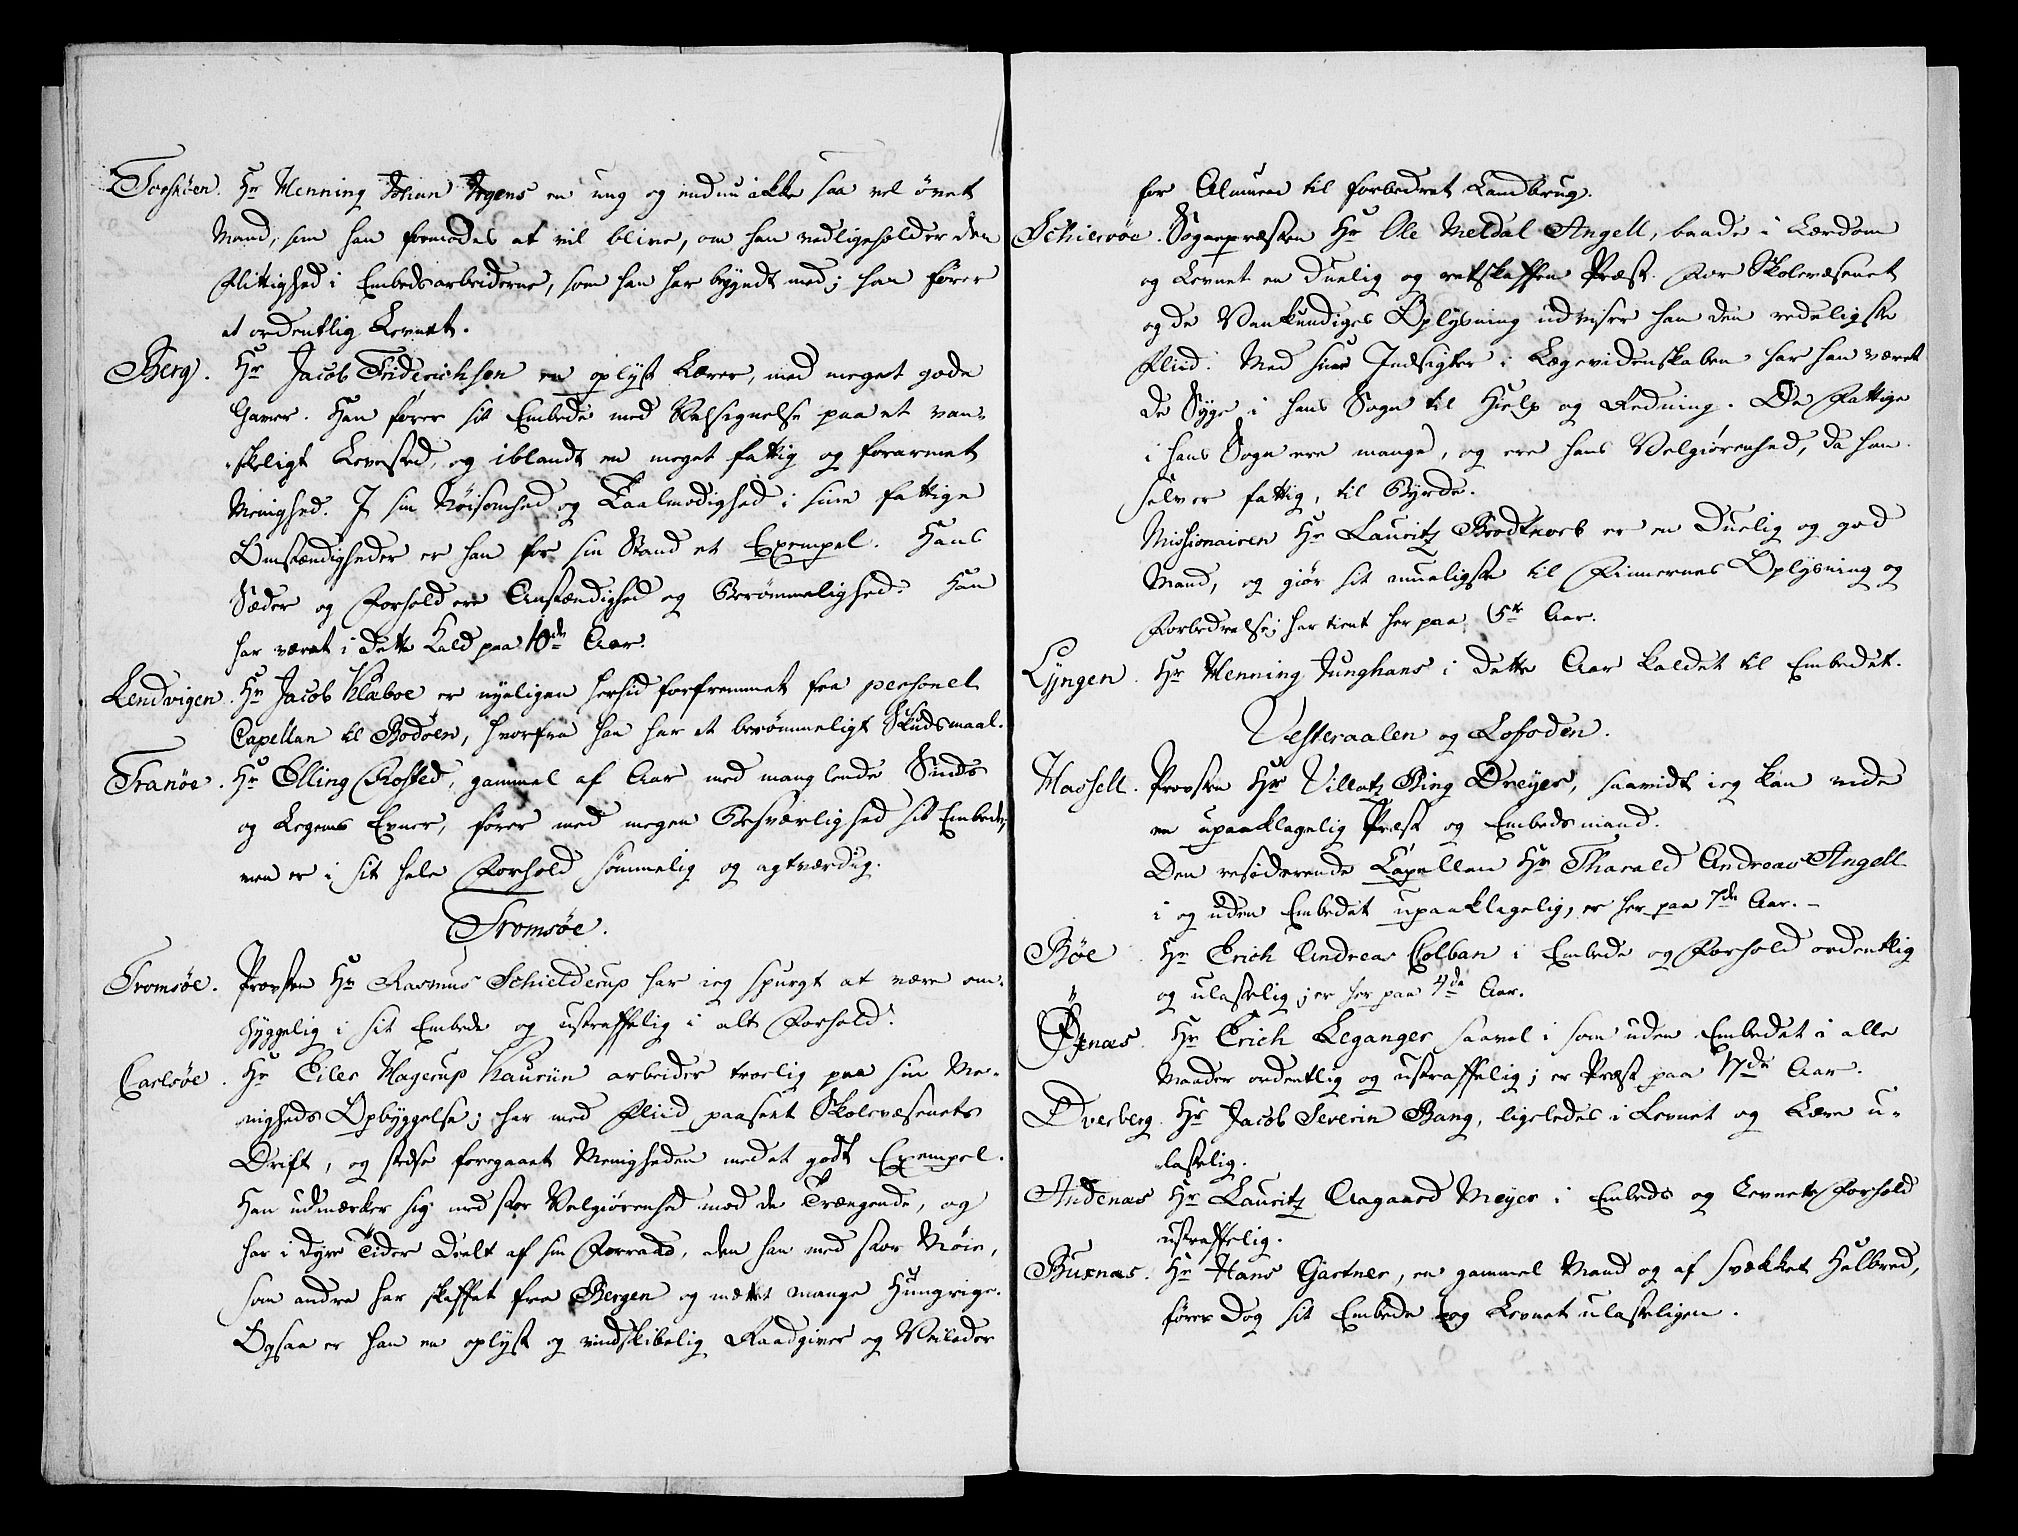 Torskøen. Hr Henning Johan Irgens en ung og endnu ikke saa vel övet
Mand, som han formodes at vil blive, om han vedligeholder den
Flittighed i Embedsarbeiderne, som han har begyndt med; han fører
et ordentlig Levnet.
Berg. Hr Jacob Friderichsen en oplyst Lærer, med meget gode
Gaver. Han fører sit Embede med Velsignelse paa et van-
skeligt Levested, og iblandt en meget fattig og forarmet
Menighed. I sin Nöisomhed og Taalmodighed i sine fattige
Omstændigheder er han for sin Stand et Exempel. Hans
Sæder og Forhold ere Anstændighed og Berömmelighed. Han
har været i dette Kald paa 10de Aar.
Lendvigen. Hr Jacob Klæboe er nyeligen hersid forfremmet fra personel
Capellan til Bodöen, hvorfra han har et berömmeligt Skudsmaal.
Tranöe. Hr Elling Rosted, gammel af Aar med manglende Sinds
og Legems Evner, fører med megen Besværlighed sit Embede,
men er i sit hele Forhold sömmelig og agtværdig.
Tromsøe.
Tromsøe. Provsten Hr Rasmus Schielderup har ieg spurgt at være om-
hyggelig i sit Embede og ustraffelig i alt Forhold.
Carlsöe. Hr Eiler Hagerup Kaurin arbeider troelig paa sin Me-
nigheds Opbyggelse; har med Fliid paaseet Skolevæsenets
Drift, og stedse foregaaet Menigheden med et godt Exempel.
Han udmærker sig med stor Velgiörenhed mod de Trængende, og
har i dyre Tider deelt af sin Forraad, den han med stor Möie,
som andre har skaffet fra Bergen og mættet mange Hungrige.
Ogsaa er han en oplyst og vindskibelig Raadgiver og Veileder
for Almuen til forbedret Landbrug.
Schiervöe. Sognepræsten Hr Ole Meldal Angell, baade i Lærdom
og Levnet en duelig og retskaffen Præst. For Skolevæsenet
og de Vankundiges Oplysning udviser han den redeligste
Fliid. Med sine Indsigter i Lægevidenskaben har han været
de Syge i hans Sogn til Hielp og Redning. De Fattige
i hans Sogn ere mange, og ere hans Velgiörenhed, da han
selv er fattig, til Byrde.
Missionairen Hr Lauritz Brodtkorb er en duelig og god
Mand, og giör sit mueligste til Finnernes Oplysning og
Forbedrelse; har tient her paa 5te Aar.
Lyngen. Hr Henning Junghans i dette Aar kaldet til Embedet.
Vesteraalen og Lofoden.
Hassell. Provsten Hr Villatz Bing Dreyer, saavidt ieg kan vide
en upaaklagelig Præst og Embedsmand.
Den residerende Capellan Hr Tharald Andreas Angell
i og uden Embedet upaaklagelig, er her paa 7de Aar. –
Böe Hr Erich Andreas Colban i Embede og Forhold ordentlig
og ulastelig; er her paa 4de Aar.
Öxnæs. Hr Erich Leganger saavel i som uden Embedet i alle
Maader ordentlig og ustraffelig; er Præst paa 17de Aar.
Dverberg. Hr Jacob Severin Bang, ligeledes i Levnet og Lære u-
lastelig.
Andenæs Hr Lauritz Aagaard Meyer i Embeds og Levnets Forhold
ustraffelig.
Buxnæs. Hr Hans Gartner, en gammel Mand og af svækket Helbred,
fører dog sit Embede og Levnet ulasteligen.